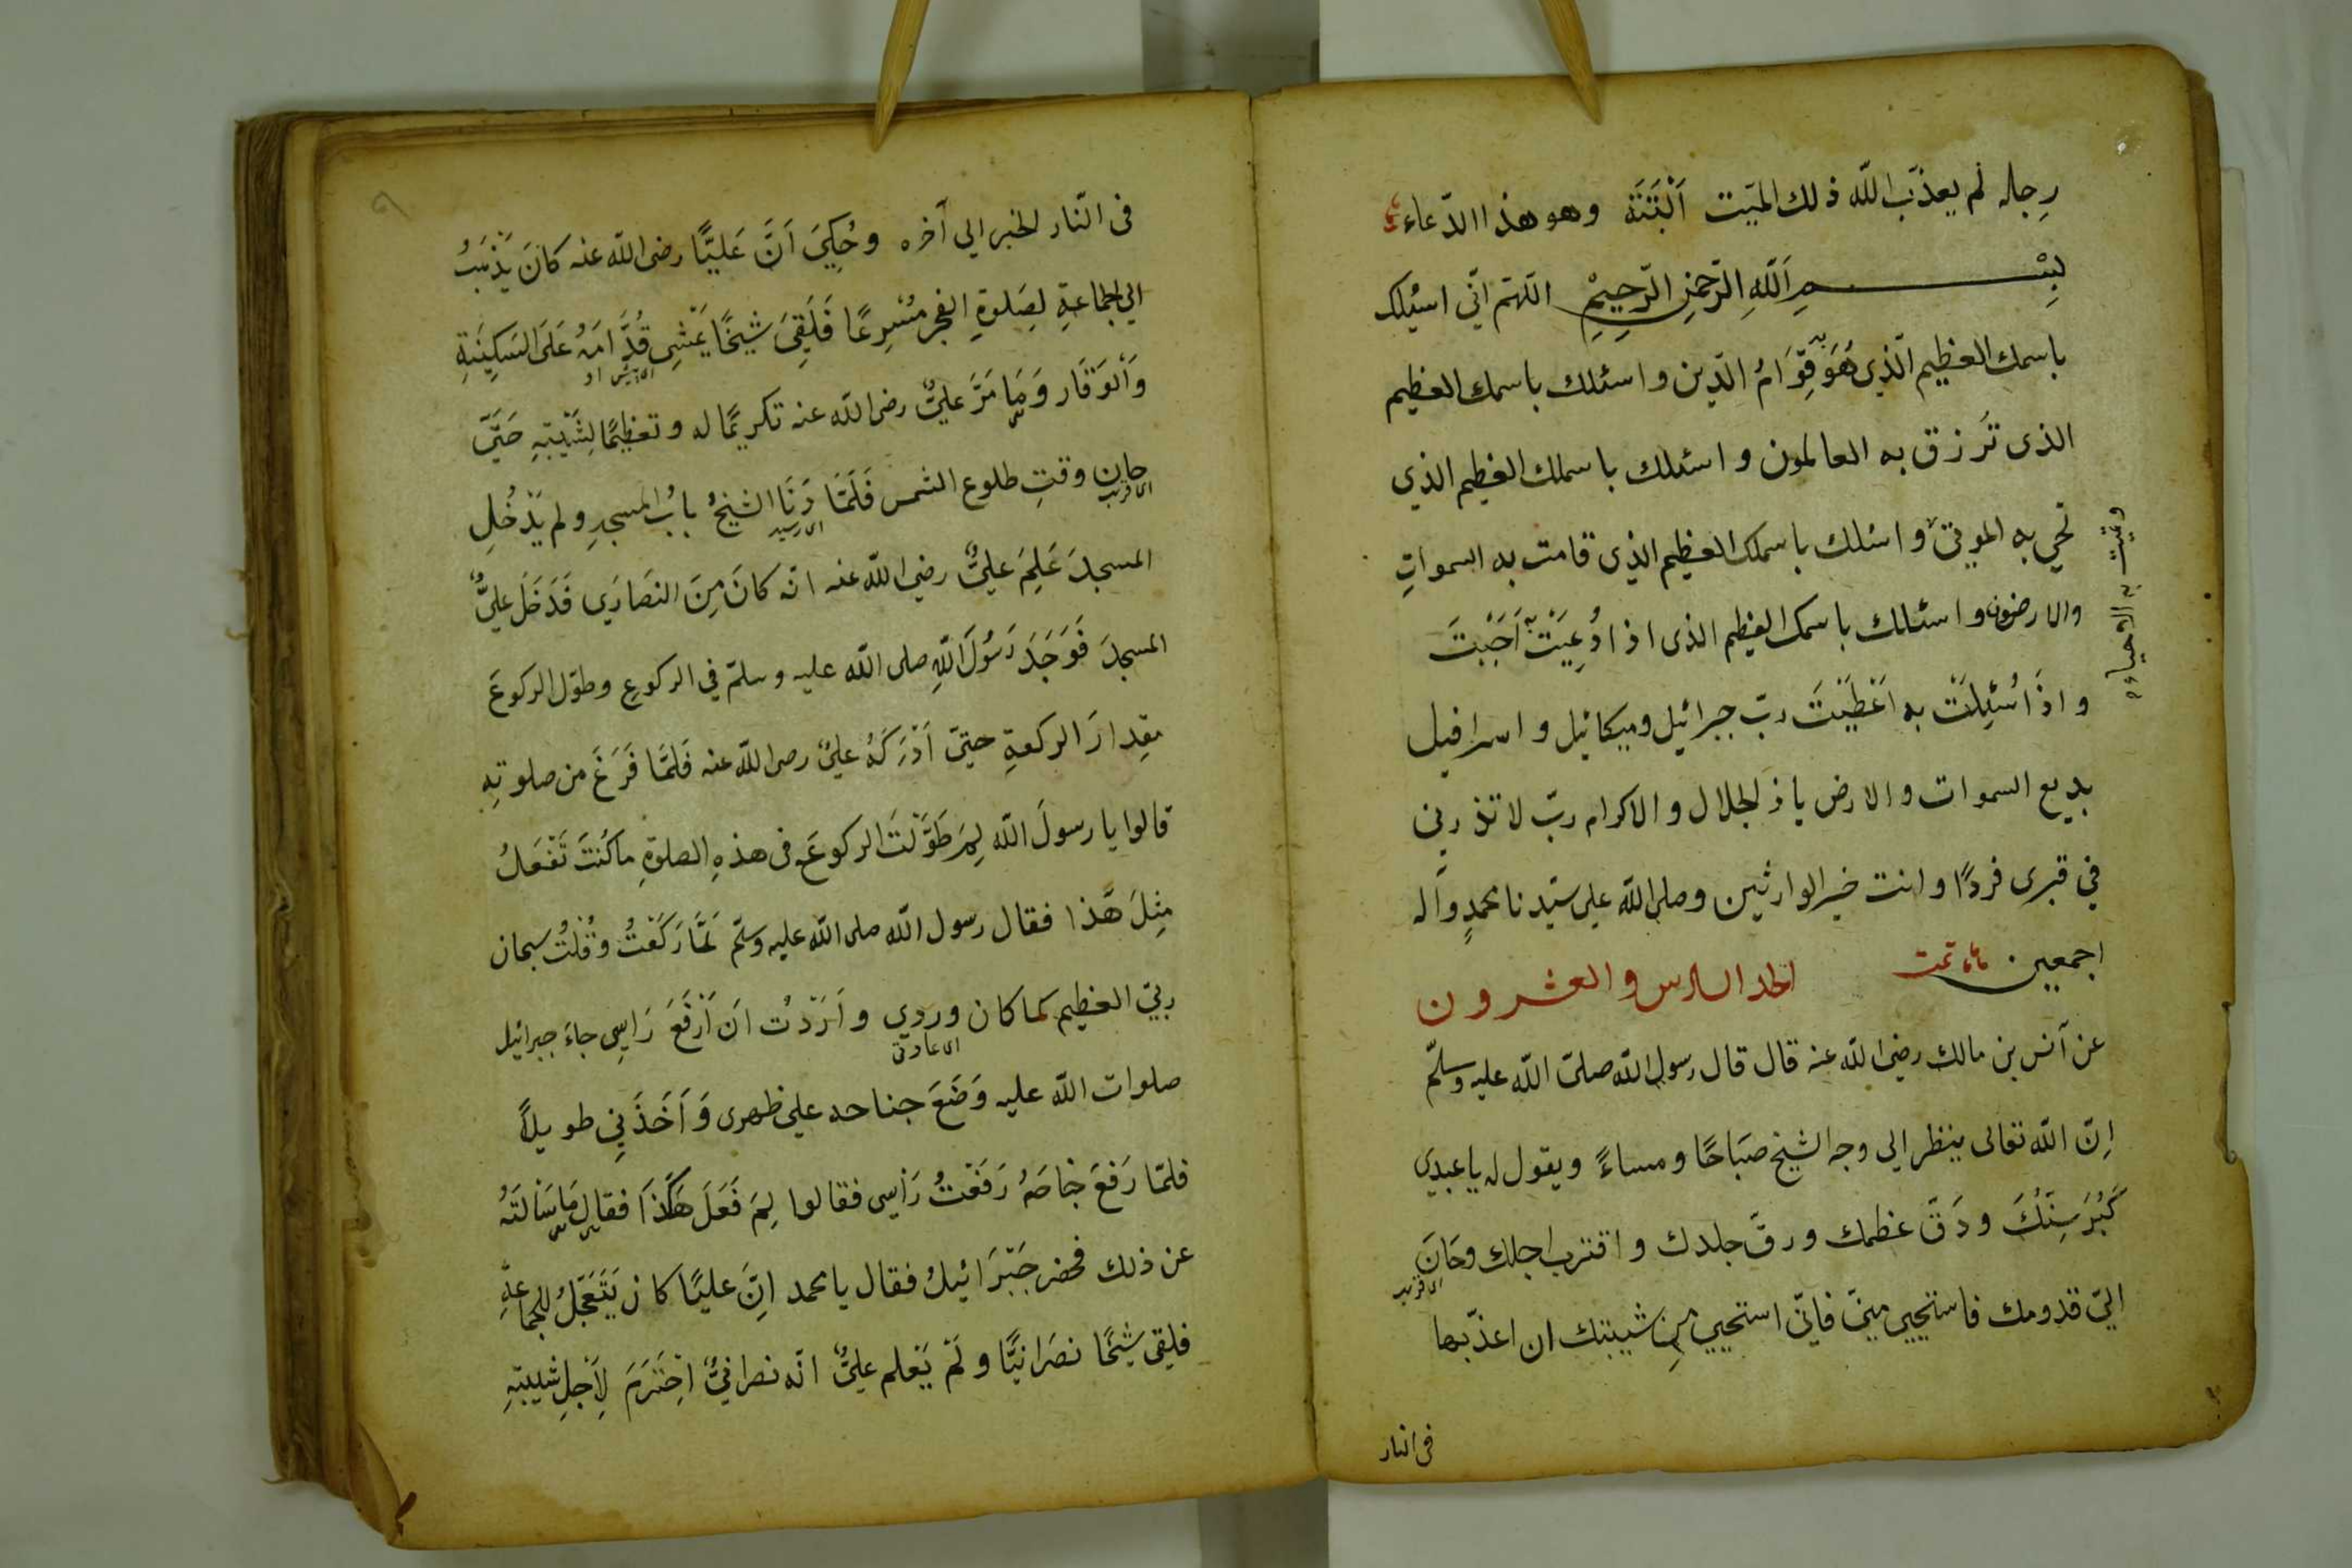 رجله لم يعذّب الله ذلك الميّت اَلْبَتَّةَ وهو هذا الدّعاء
بِسْمِ اَللّهِ الرَّحْمٰنِ الرَّحِيْمِ اللّهمّ انّي اسئلك
باسمك العظيم الّذي هُوَ قِوَامُ الدّين واسئلك باسمك العظيم
الذى تَرزق به العالمون واسئلك باسمك العظيم الذي
تحي به الموتى واسئلك باسمك العظيم الذى قامت به السمواتِ
والارضون واسئلك باسمك العظيم الذى اذا دُعِيْتَ به اَجَبْتَ
واذَا سُئِلْتَ به اَعْطَيْتَ ربّ جبرائيل وميكائيل واسرافيل
بديع السموات والارض ياذالجلال والاكرام ربّ لا تذرني
في قبرى فردًا وانت خير الوارثين وصلى الله على سيّدنا محمدٍ وآله
اجمعين تمت الحد السادس والعشرون
عن اَنس بن مالك رضى الله عنه قال قال رسول الله صلىّ الله عليه وسلّم
اِنّ الله تعالى ينظر الى وجه الشيخ صَبَاحًا ومساءً ويقول له يا عبدي
كَبُرَ سِنُّكَ ودَقَّ عظمك ورقّ جلدك واقترب اجلك وحَانَ
اى قريب
اليّ قدومك فاستحيي منيّ فانّي استحيي مِن شيبتك ان اعذّبها
فى النار
فى النّار الخبر الي آخره وحُكِيَ اَنَّ عَليًّا رضى الله عنه كانَ يَذْهَبُ
الي الجماعةِ لِصَلوةِ الفجر مُسْرِعًا فَلَقِىَ شَيْخًا يَمْشِى قُدَّامَهُ عَلَى السَكِينَةِ
اى پيش او
وَالْوَقَار وَمَا مَرَّ عليٌّ رضى الله عنه تكريمًا له وتعظيمًا لِشَيْبَتِهِ حَتيّ
حان وقتِ طلوع الشمس فَلَمّا دَنَا الشيخُ بابُ المسجدِ ولم يَدْخُلِ
اى قريب
اى رسيد
المسجدَ عَلِمَ عليٌّ رضي الله عنه انّه كانَ مِنَ النَصَارَي فَدَخَلَ عليٌّ
المسجدَ فَوَجَدَ رَسُولَ اللهِ صلى الله عليه وسلمّ في الركوعِ وطوّل الركوعَ
مقدارَ الركعةِ حتيّ اَدْرَكَهُ عليٌ رضى الله عنه فَلمّا فَرَغَ من صلوتِهِ
قالوا يا رسولَ الله لِمَ طَوَّلْتَ الركوعَ فى هذهِ الصلوةِ ما كُنْتَ تَفْعَلُ
مِثلَ هَذا فقال رسول الله صلى الله عليه وسلّم لَمَّا رَكَعْتُ وقُلْتُ سبحان
ربيّ العظيم كما كان وردي واَرَدْتُ ان اَرْفَعَ رَاسِى جاءَ جبرائيل
اى عادتى
صلوات الله عليه وَضَعَ جناحه علي ظهرى وَاَخَذَنِي طويلاً
فلمّا رَفَعَ جناحَهُ رَفَعْتُ رَأسى فقالوا لِمَ فَعَلَ هَكَذا فقال مَا سَألَتَهُ
عن ذلك فحضر جَبْرَائيلُ فقال يا محمد اِنَّ عليًا كان يَتَعَجَّلُ للجماعةِ
فلقى شَيْخًا نصَرانيًّا ولَمْ يَعْلم عليٌّ انّه نصرانيٌّ اِحْتَرَمَ لِاَجْلِ شَيْبَتِهِ